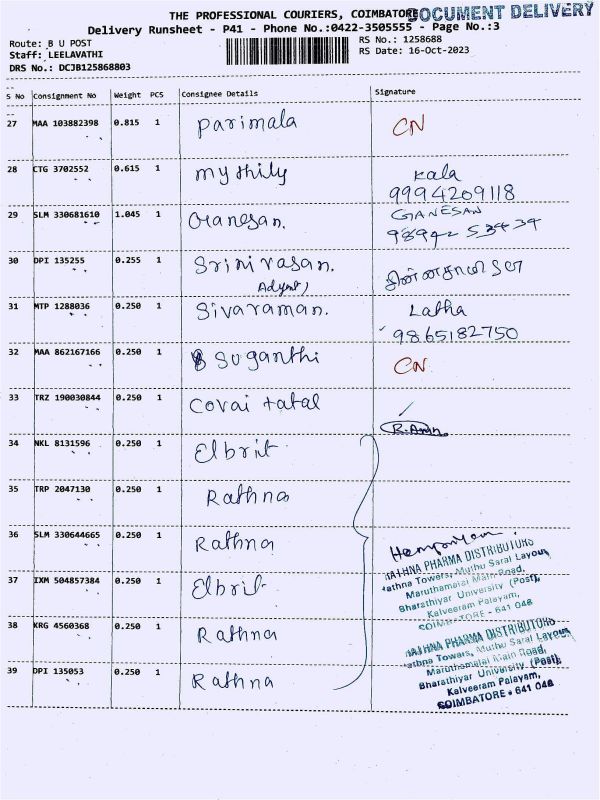 THE PROFESSIONAL COURIERS, COIMBATORE
DOCUMENT DELIVERY
Delivery Runsheet - P41 - Phone No.:0422-3505555 - Page No.:3
Route: B U POST
RS No.: 1258688
Staff: LEELAVATHI
RS Date: 16-Oct-2023
DRS No.: DCJB125868803
S No Consignment No Weight PCS Consignee Details Signature
27 MAA 103882398 0.815 1 Parimala CN
28 CTG 3702552 0.615 1 mythily Kala
9994209118
29 SLM 330681610 1.045 1 Ganesan. GANESAN
98942 53434
30 DPI 135255 0.255 1 Srinivasan.
31 MTP 1288036 0.250 1 Sivaraman. Latha
9865182750
32 MAA 862167166 0.250 1 Suganthi CN
33 TRZ 190030844 0.250 1 Covai tatal
34 NKL 8131596 0.250 1 Elbrit
35 TRP 2047130 0.250 1 Rathna
36 SLM 330644665 0.250 1 Rathna
RATHNA PHARMA DISTRIBUTORS
Rathna Towers, Muthu Saral Layout,
Maruthamalai Main Road,
Bharathiyar University (Post),
Kalveeram Palayam,
COIMBATORE - 641 046
37 IXM 504857384 0.250 1 Elbrit
38 KRG 4560368 0.250 1 Rathna
RATHNA PHARMA DISTRIBUTORS
Rathna Towers, Muthu Saral Layout,
Maruthamalai Main Road,
Bharathiyar University (Post),
Kalveeram Palayam,
COIMBATORE - 641 046
39 DPI 135053 0.250 1 Rathna